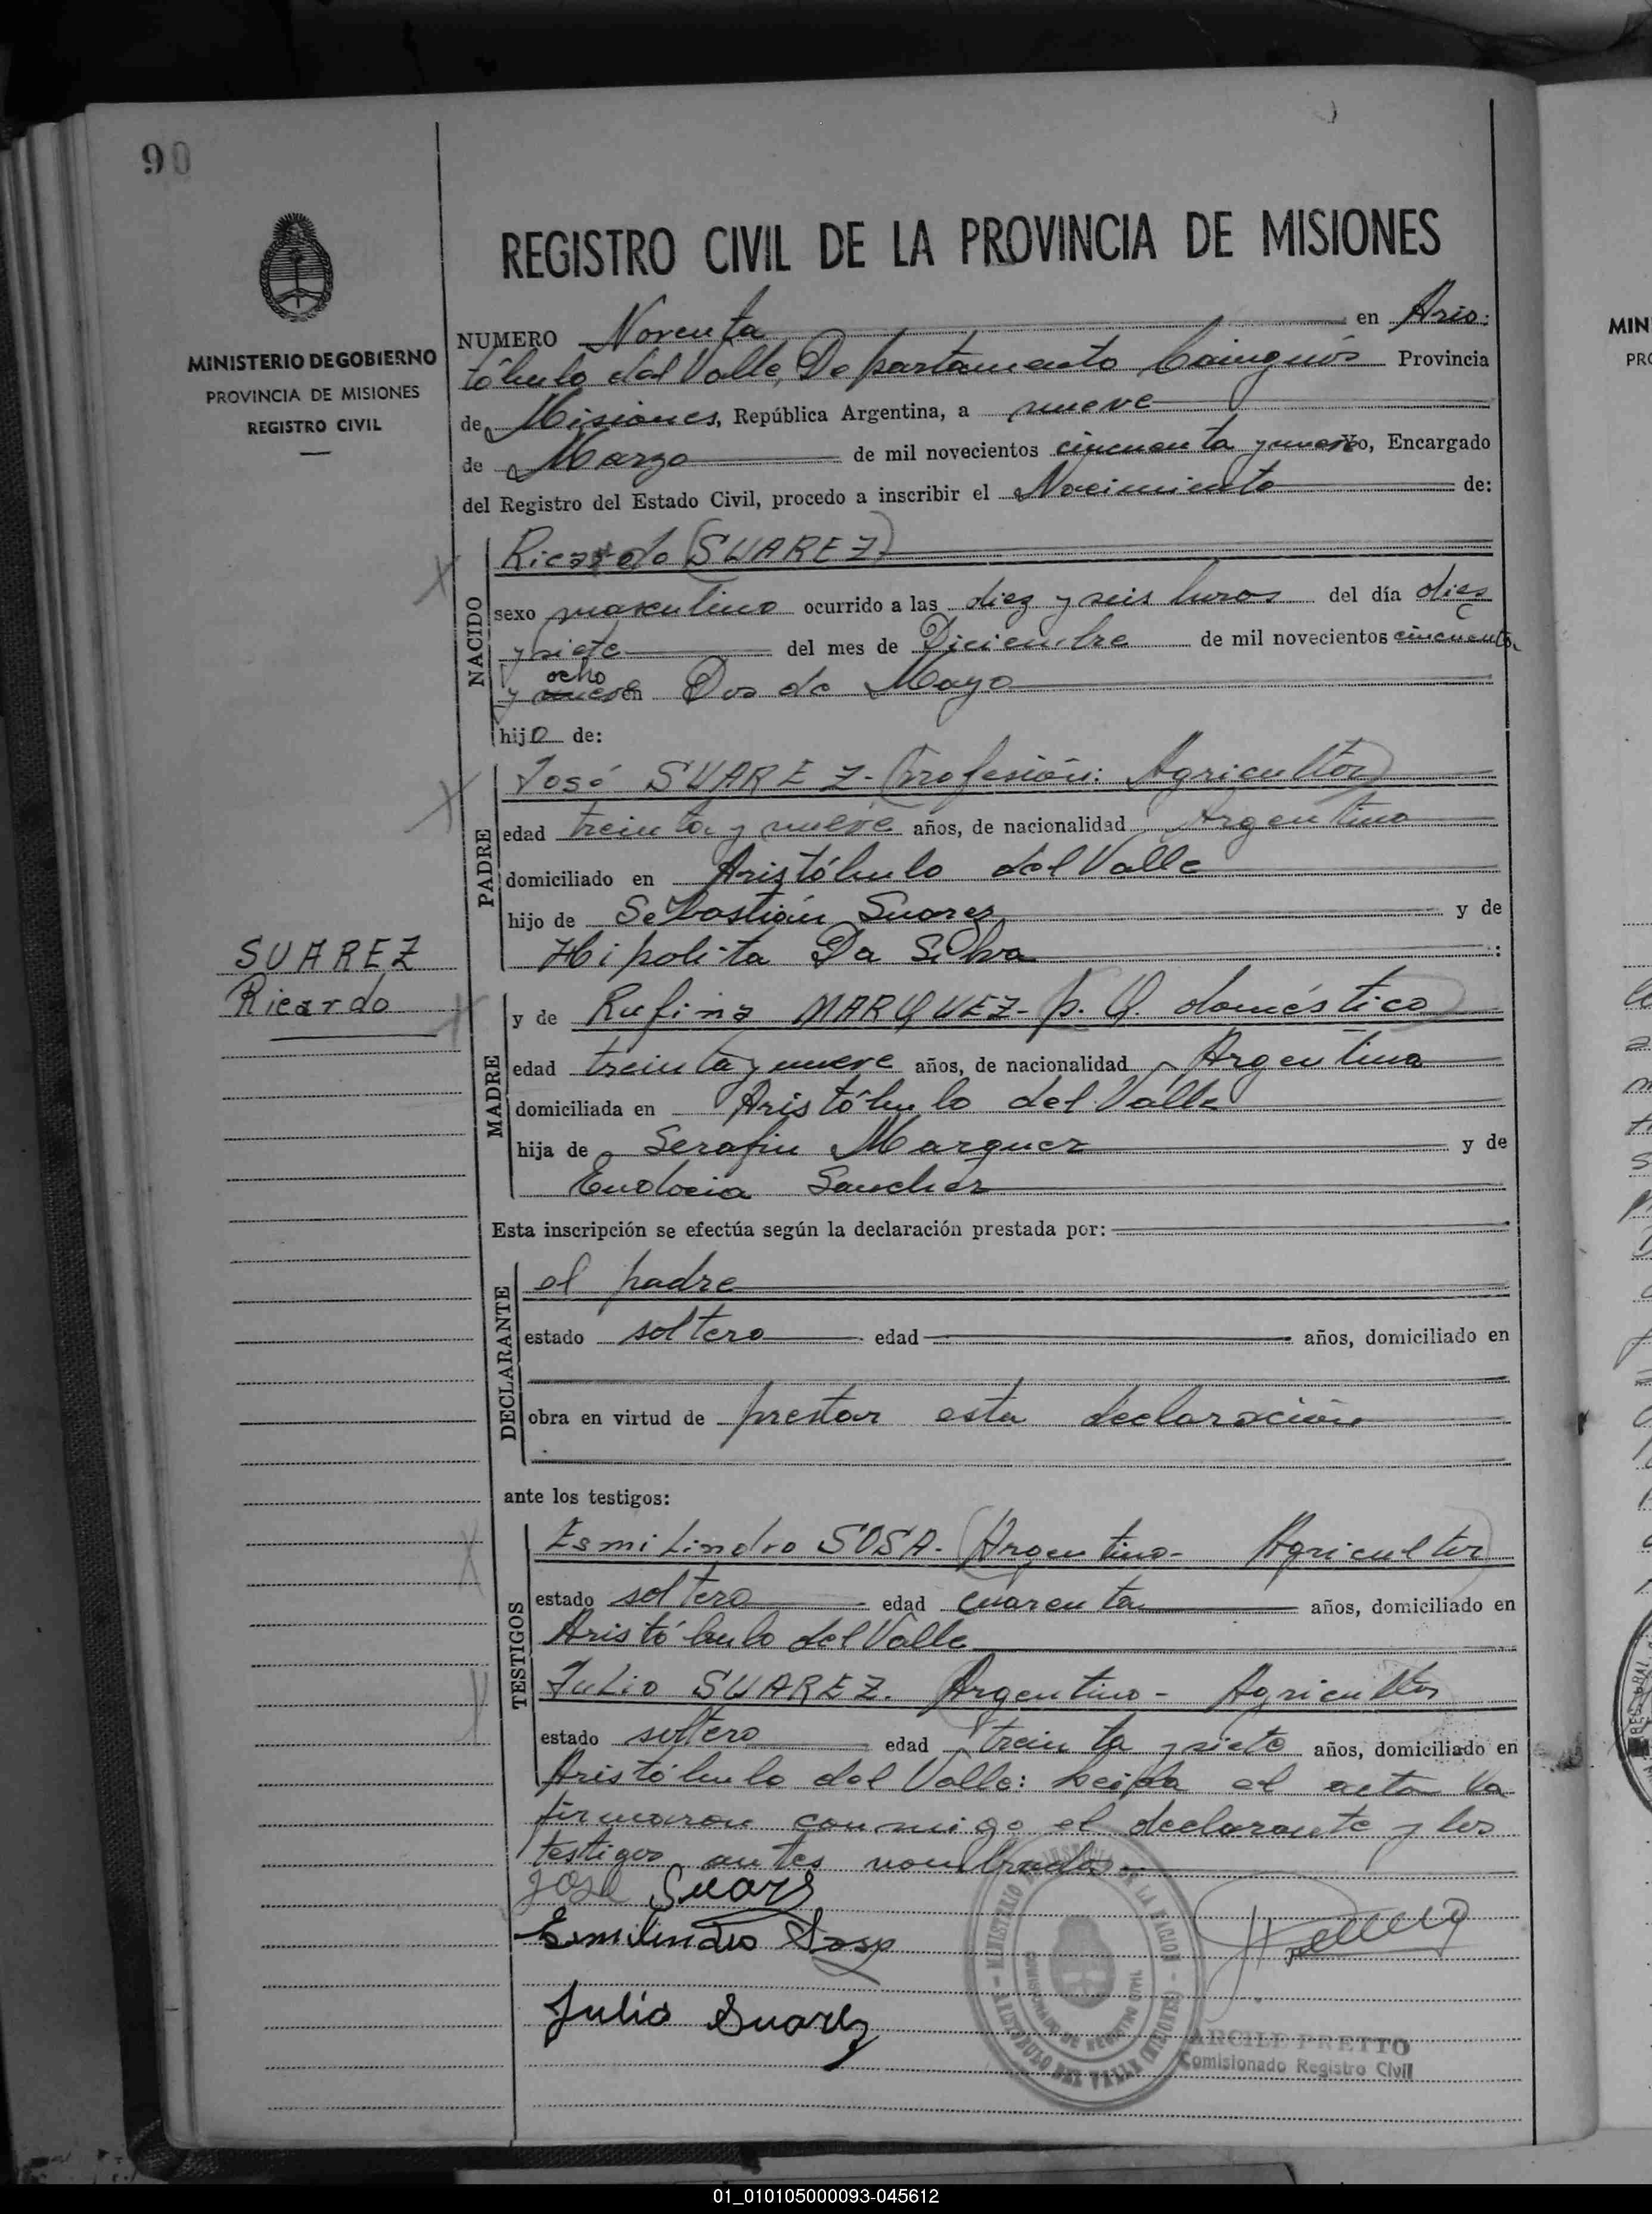 90
REGISTRO CIVIL DE LA PROVINCIA DE MISIONES
MINISTERIO DE GOBIERNO
PROVINCIA DE MISIONES
REGISTRO CIVIL
NUMERO Noventa en Aris:
tóbulo del Valle, Departamento Cainguás Provincia
de Misiones, República Argentina, a nueve
de Marzo de mil novecientos cincuenta y nueve Yo, Encargado
del Registro del Estado Civil, procedo a inscribir el Nacimiento de:
NACIDO
Ricardo (SUAREZ)
sexo masculino ocurrido a las diez y seis horas del día diez
y siete del mes de Diciembre de mil novecientos cincuenta
ocho
y nueve en Dos de Mayo
hijo de:
PADRE
José SUAREZ - (Profesión: Agricultor)
edad treinta y nueve años, de nacionalidad Argentina
domiciliado en Aristóbulo del Valle
hijo de Sebastián Suarez y de
Hipolita Da Silva :
SUAREZ
Ricardo
MADRE
y de Rufina MARQUEZ - p. Q. doméstico
edad treinta y nueve años, de nacionalidad Argentina
domiciliada en Aristóbulo del Valle
hija de Serafin Marquez y de
Eudocia Sanchez
Esta inscripción se efectúa según la declaración prestada por:
DECLARANTE
el padre
estado soltero edad años, domiciliado en
obra en virtud de prestar esta declaración
ante los testigos:
TESTIGOS
Esmilindro SOSA. (Argentino - Agricultor)
estado soltero edad cuarenta años, domiciliado en
Aristóbulo del Valle
Julio SUAREZ. Argentino - Agricultor
estado soltero edad treinta y siete años, domiciliado en
Aristóbulo del Valle: Leida el acta la
firmaron conmigo el declarante y los
testigos antes nombrados.
José Suarez
Esmilindro Sosa
Julio Suarez
MINISTERIO DE JUSTICIA DE LA NACION - ARISTOBULO DEL VALLE (MISIONES)
COMISIONADO DE REGISTRO CIVIL
ARCILE PRETTO
Comisionado Registro Civil
01_010105000093-045612